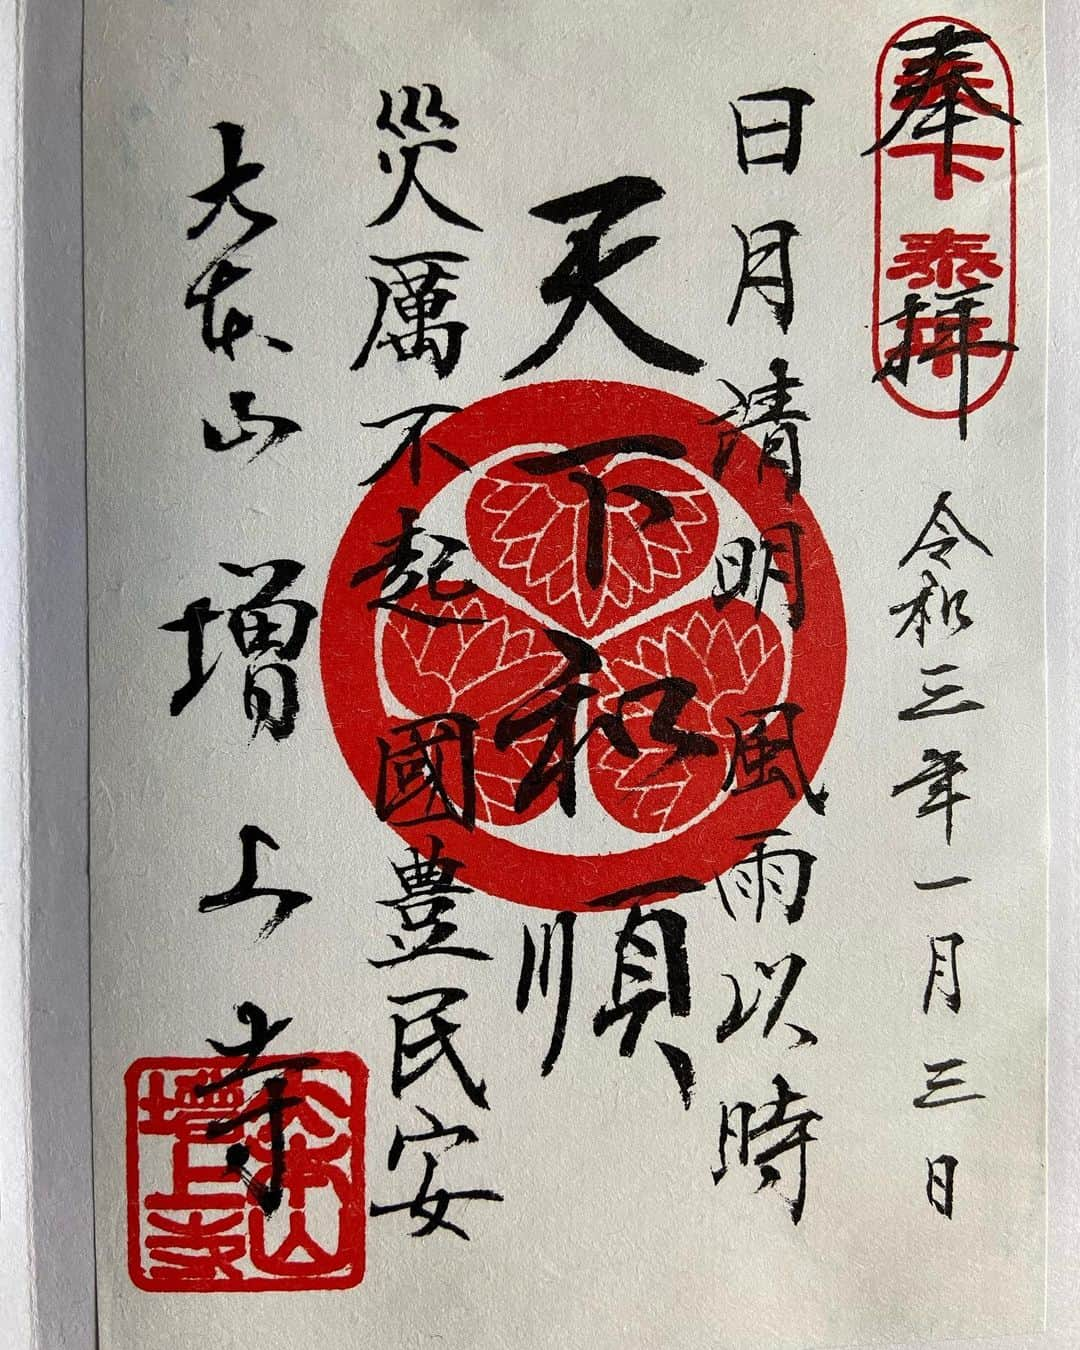 奉拝
天下泰平
令和三年一月三日
日月清明風雨以時
天下和順
災厲不起國豊民安
大本山 増上寺
大本山
増上寺